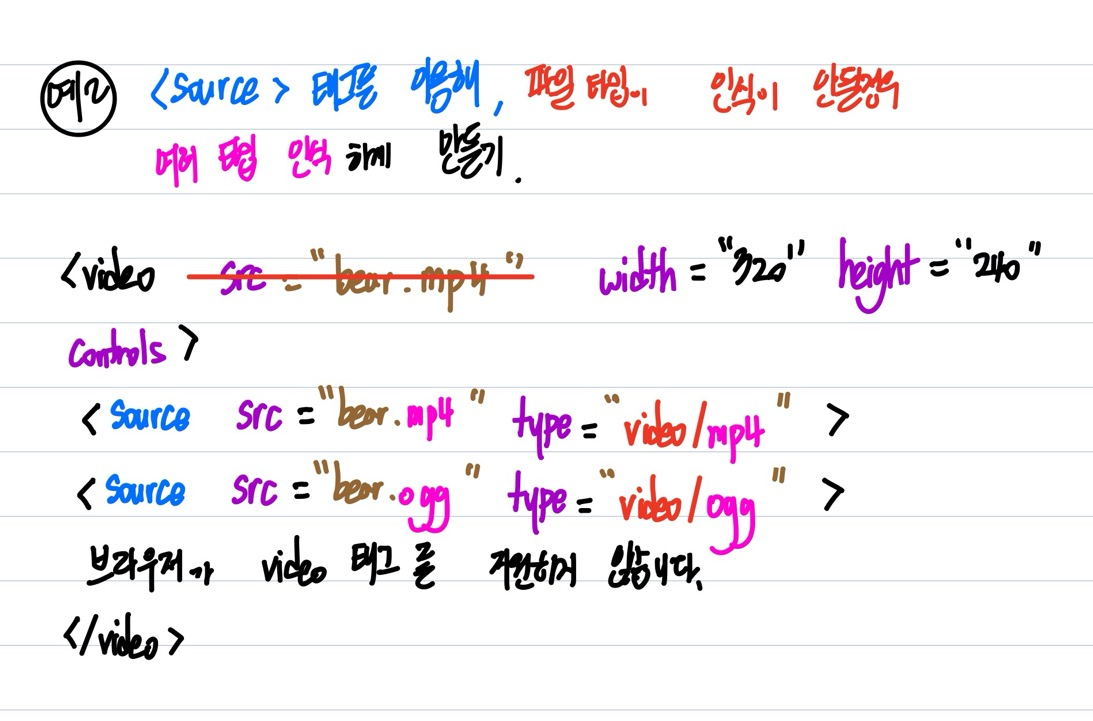 예2 <Source> 태그를 이용해, 파일 타입이 인식이 안될경우
여러 타입 인식 하게 만들기.
<video src = "bear.mp4" width = "320" height = "240"
Controls >
< Source src = "bear.mp4" type = "video/mp4" >
< Source src = "bear.ogg" type = "video/ogg" >
브라우저가 video 태그를 지원하지 않습니다.
</video>